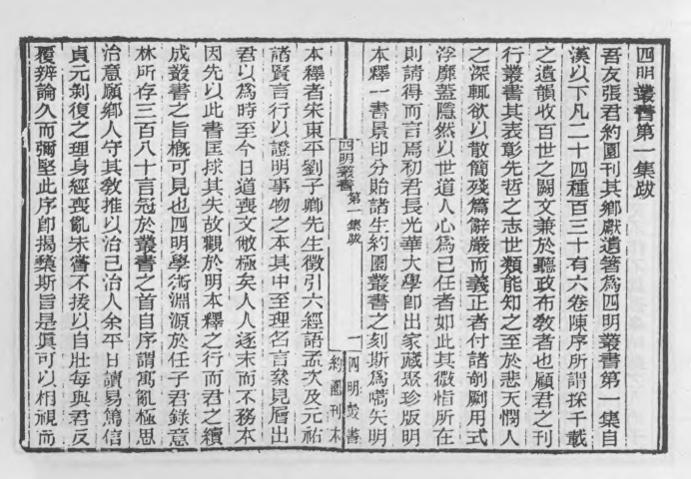 四明叢書第一集跋
吾友張君約園刊其鄉獻遺箸爲四明叢書第一集自
漢以下凡二十四種百三十有六卷陳序所謂採千載
之遺韻收百世之闕文兼於聽政布教者也顧君之刊
行叢書其表彰先哲之志世類能知之至於悲天憫人
之深輒欲以散簡殘篇辭嚴而義正者付諸剞劂用式
浮靡蓋隱然以世道人心爲己任者如此其微恉所在
則請得而言焉初君長光華大學卽出家藏聚珍版明
本釋一書景印分貽諸生約園叢書之刻斯爲嚆矢明
四明叢書
第一集跋
一
四明叢書
約園刊本
本釋者宋東平劉子卿先生徵引六經語孟次及元祐
諸賢言行以證明事物之本其中至理名言桼見層出
君以爲時至今日道喪文敝極矣人人逐末而不務本
因先以此書匡捄其失故觀於明本釋之行而君之續
成叢書之旨槪可見也四明學術淵源於任子君錄意
林所存三百八十言冠於叢書之首自序謂寓亂極思
治意願鄉人守其教推以治己治人余平日讀易篤信
貞元剝復之理身經喪亂未嘗不拔以自壯每與君反
覆辨論久而彌堅此序卽揭櫫斯旨是眞可以相視而